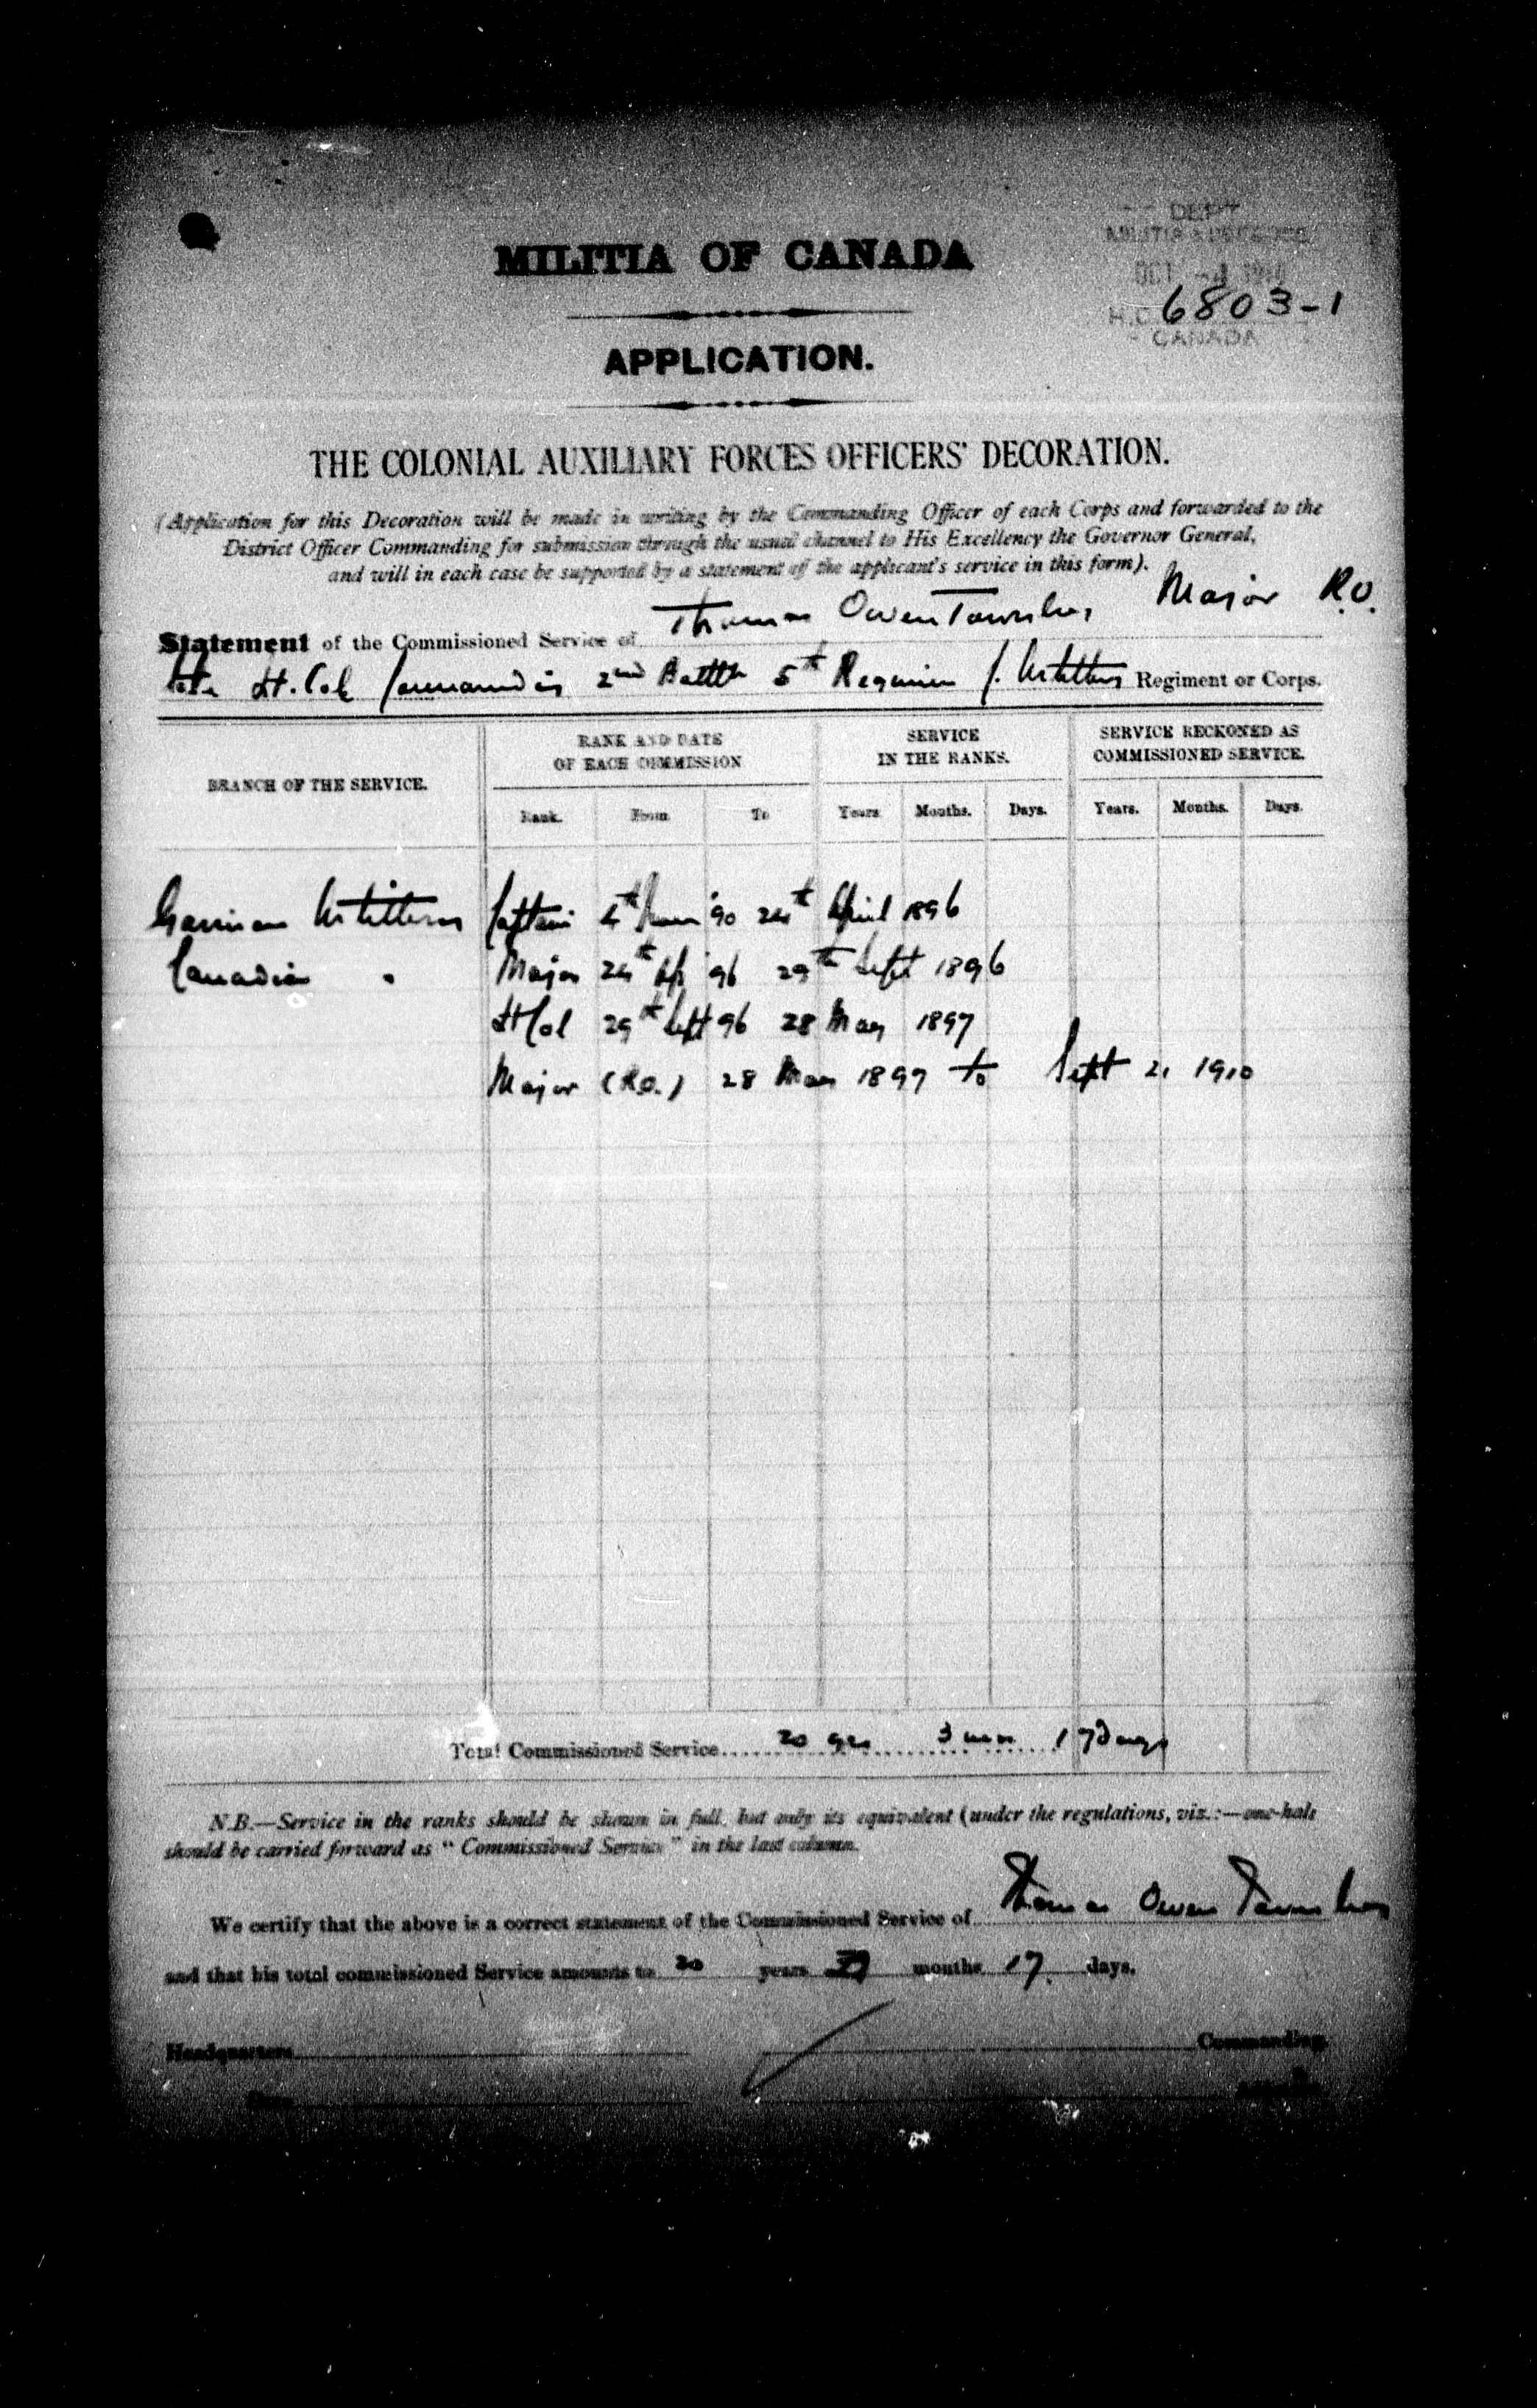 DEPT
MILITIA & DEFENCE
MILITIA OF CANADA
OCT -4 1910
H.Q. 6803-1
CANADA
APPLICATION.
THE COLONIAL AUXILIARY FORCES OFFICERS' DECORATION.
(Application for this Decoration will be made in writing by the Commanding Officer of each Corps and forwarded to the
District Officer Commanding for submission through the usual channel to His Excellency the Governor General,
and will in each case be supported by a statement of the applicant's service in this form).
Statement of the Commissioned Service of Thomas Owen Townley Major R.O.
late Lt. Col Commanding 2nd Battln 5th Regimen C. Artillery Regiment or Corps.
BRANCH OF THE SERVICE. RANK AND DATE OF EACH COMMISSION SERVICE IN THE RANKS. SERVICE RECKONED AS COMMISSIONED SERVICE.
Rank. From To Years Months. Days. Years. Months. Days.
Garrison Artillery Captain 4th June '90 24th April 1896
Canadian " Major 24th Ap '96 29th Sept 1896
Lt Col 29th Sept 96 28 May 1897
Major (R.O.) 28 May 1897 to Sept 21 1910
Total Commissioned Service 20 yrs 3 mos 17 days
N.B.—Service in the ranks should be shown in full, but only its equivalent (under the regulations, viz.:—one-half
should be carried forward as "Commissioned Service" in the last column.
We certify that the above is a correct statement of the Commissioned Service of Thomas Owen Townley
and that his total commissioned Service amounts to 20 years months 17 days.
Headquarters Commanding
Date